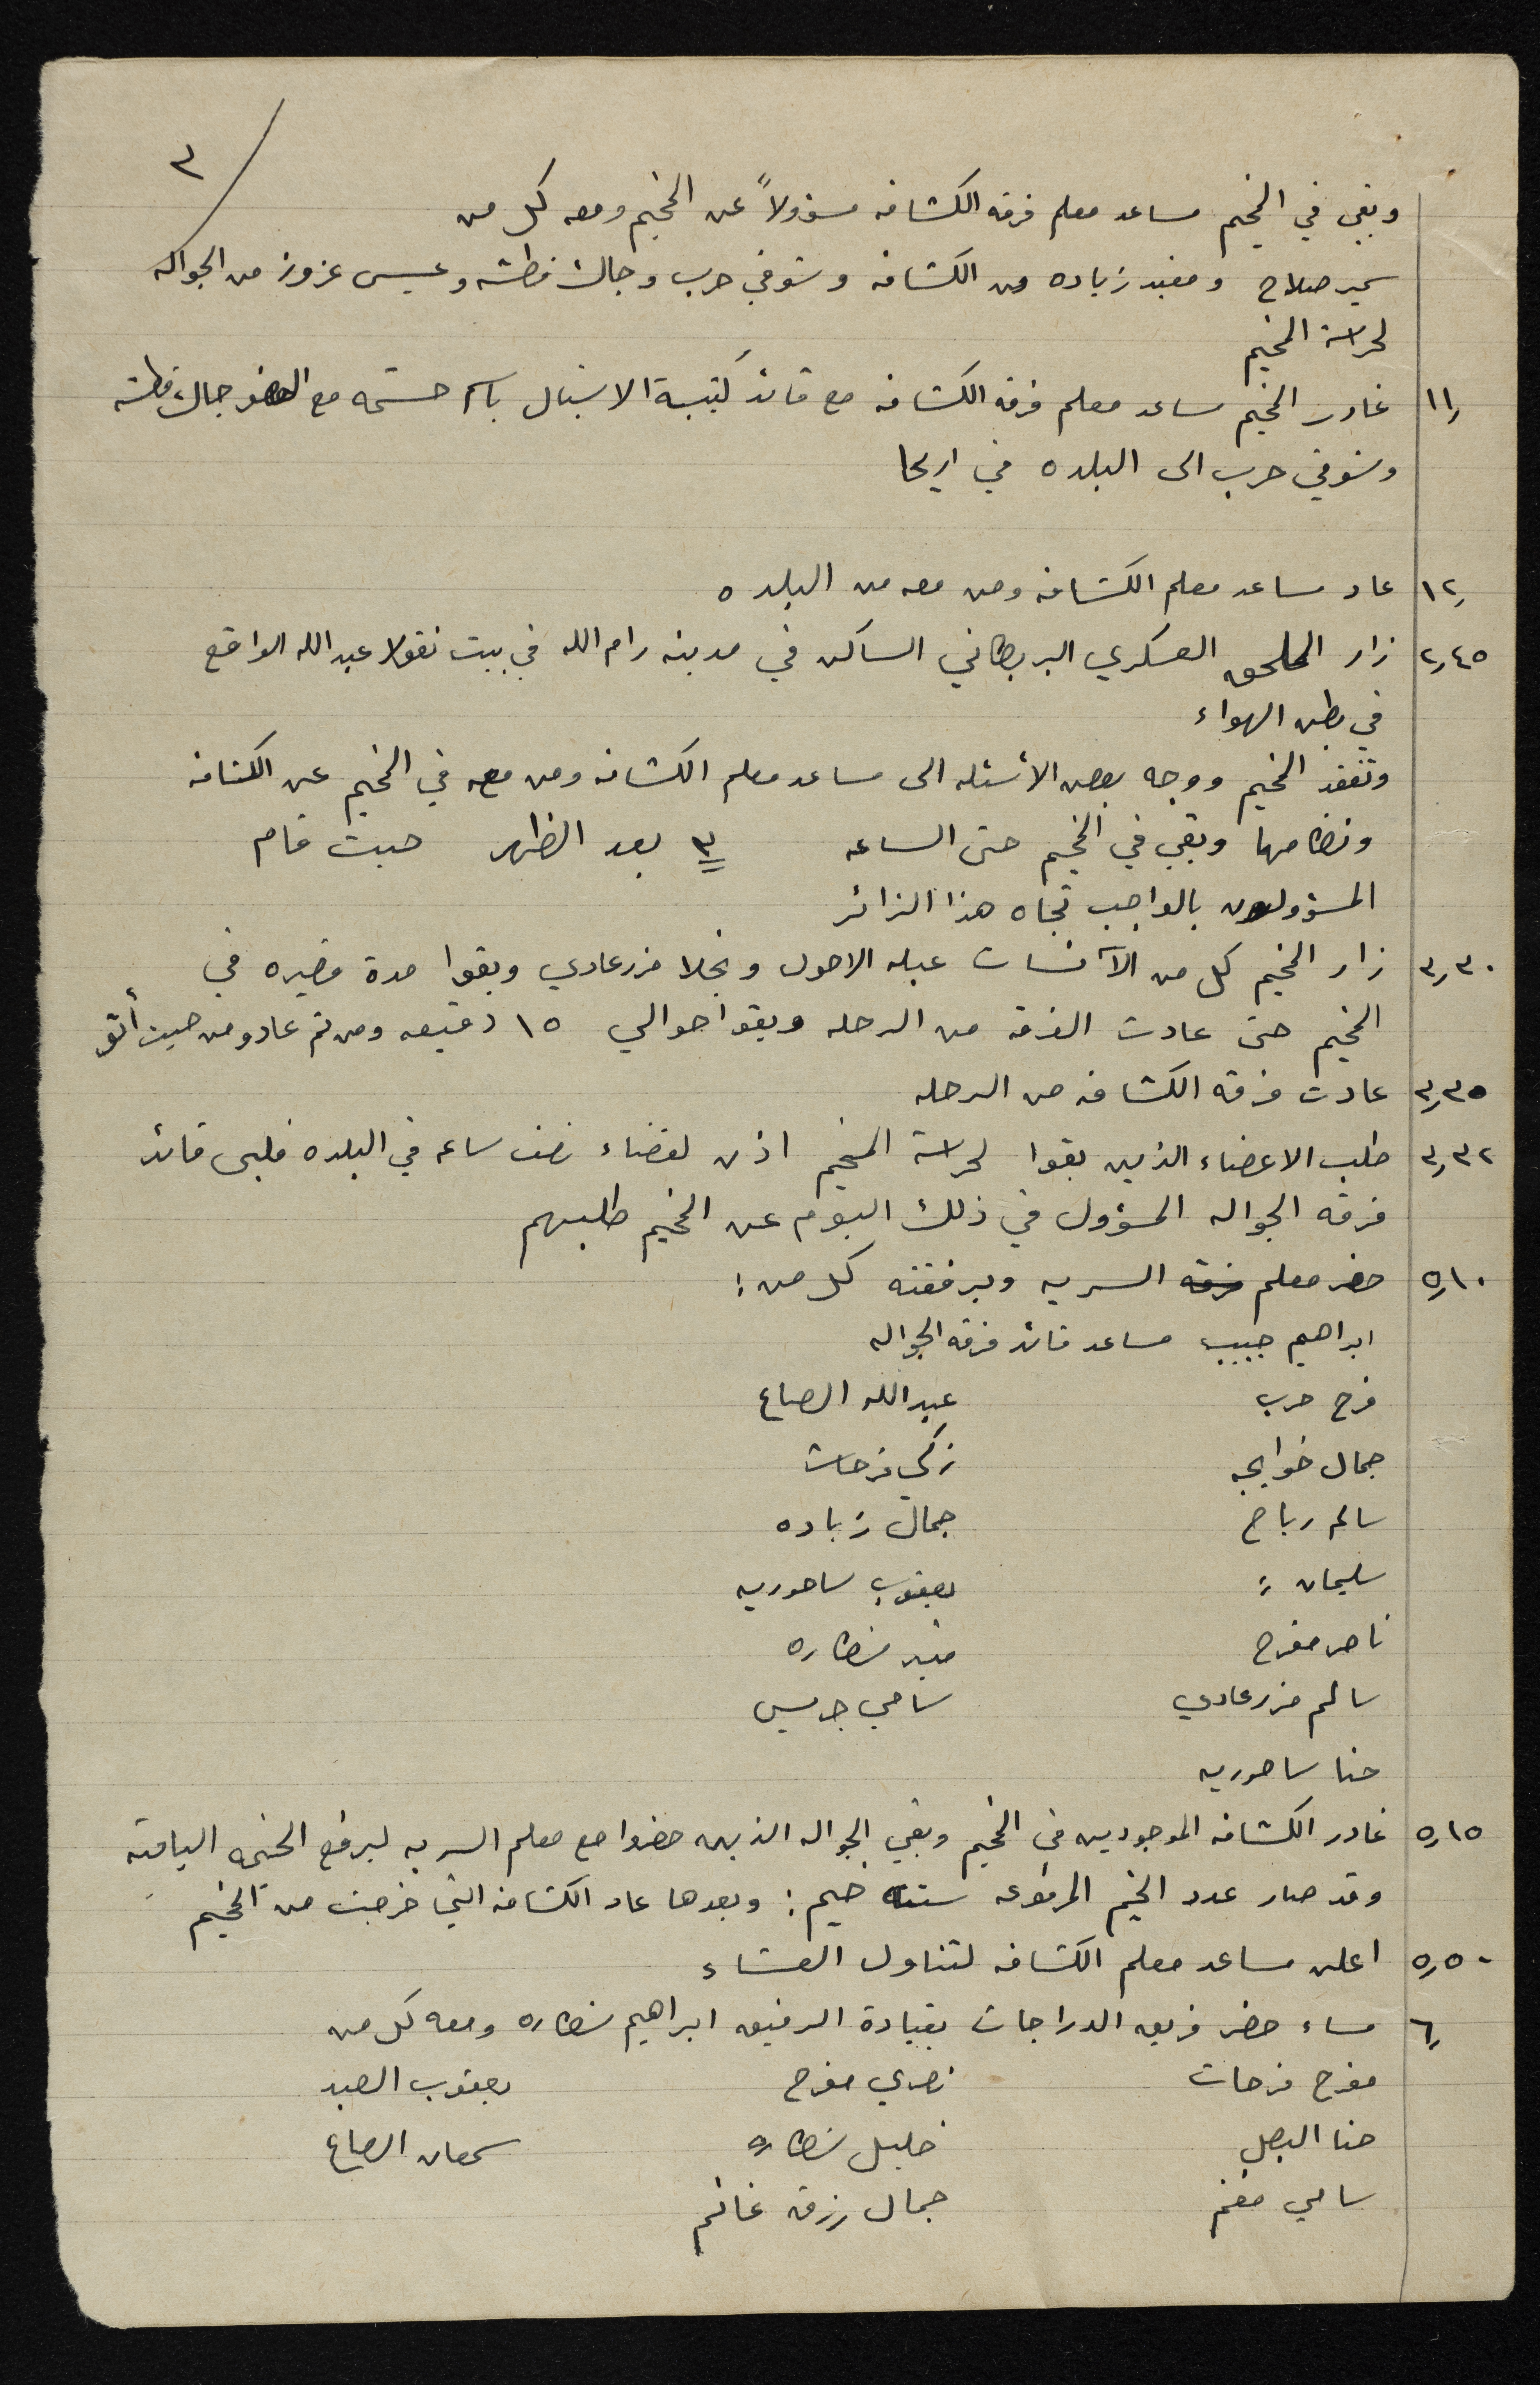 ٣
وبقي في المخيم مساعد معلم فرقه الكشافه مسؤولاً عن المخيم ومعه كل من
سمير صلاح ومفيد زياده من الكشافه وشوقي حرب وجاك قطشه وعيسى عزوز من الجواله
لحراسة المخيم
١١ر غادر المخيم مساعد معلم فرقه الكشافه مع قائد كتيبة الاشبال باسم حشمه مع العضو جاك قطشه
وشوقي حرب الى البلده في اريحا
١٢ر عاد مساعد معلم الكشافه ومن معه من البلده
٢ر٤٥ زار الملحق العسكري البريطاني الساكن في مدينه رام الله في بيت نقولا عبدالله الواقع
في بطن الهواء
وتفقد المخيم ووجه بعض الأسئله الى مساعد معلم الكشافه ومن معه في المخيم عن الكشافه
ونظامها وبقي في المخيم حتى الساعه ٣ بعد الظهر حيث قام
المسؤولون بالواجب تجاه هذا الزائر
٣ر٣٠ زار المخيم كل من الآنسات عبله الاحول ونجلا مزرعاوي وبقوا مدة قصيره في
المخيم حتى عادت الفرقه من الرحله وبقوا حوالي ١٥ دقيقه ومن ثم عادو من حيث أتو
٣ر٣٥ عادت فرقه الكشافه من الرحله
٣ر٣٢ طلب الاعضاء الذين بقوا لحراسة المخيم اذن لقضاء نصف ساعه في البلده فلبى قائد
فرقه الجواله المسؤول في ذلك اليوم عن المخيم طلبهم
٥ر١٠ حضر معلم فرقه السريه وبرفقته كل من :
ابراهيم حبيب مساعد قائد فرقه الجواله
فرح حرب عبدالله الصاع
جمال خواجه زكي فرحات
سالم رباح جمال زياده
سليمان " يعقوب ساحوريه
ناصر مفرح منير نصاره
سالم مزرعاوي سامي جريس
حنا ساحوريه
٥ر١٥ غادر الكشافه الموجودين في المخيم وبقي الجواله الذين حضروا مع معلم السريه ليرفع الخيمه الباقيه
وقد صار عدد الخيم المرفوعه ستة خيم : وبعدها عاد الكشافه التي خرجت من المخيم
٥ر٥٠ اعلن مساعد معلم الكشافه لتناول العشاء
٦ر مساء حضر فريق الدراجات بقيادة الرفيق ابراهيم نصاره ومعه كل من
مفرح فرحات نصري مفرح يعقوب العبد
حنا البصل خليل نصاره سمعان الصاع
سامي مغنم جمال رزق غانم